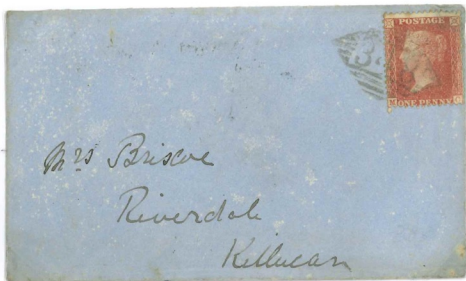 POSTAGE
ONE PENNY
Mrs Briscoe
Riverdale
Killucan